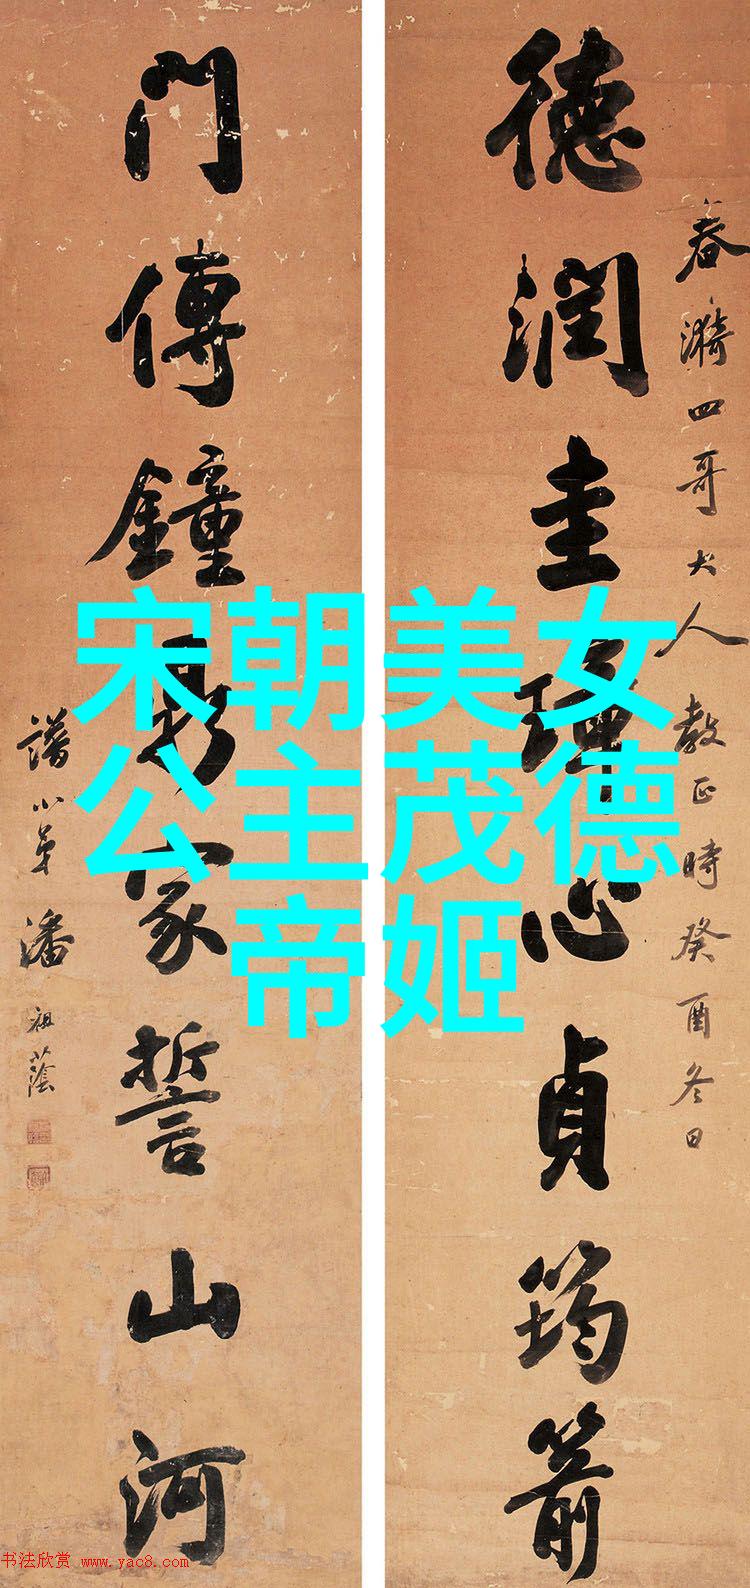 春漪四哥大人教正時癸酉冬日
德潤圭璋心貞筠箭
門傳鐘鼎家誓山河
譜小弟潘祖蔭
宋朝美女
公主茂德
帝姬
书法欣赏 www.yac8.com